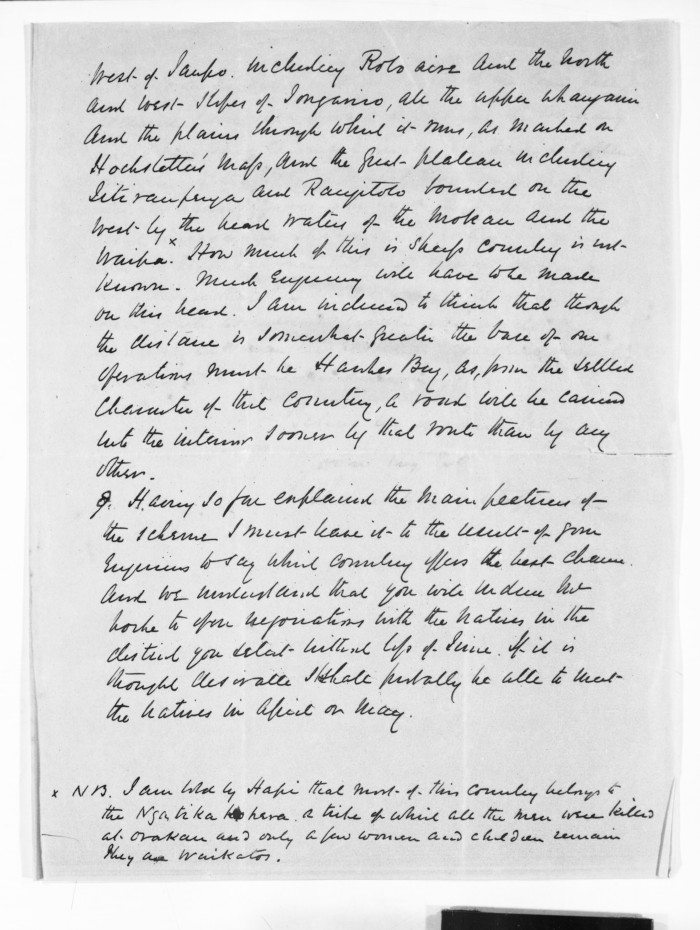 West of Taupo. including Roto aira and the North
and West Slopes of Tongariro, all the upper Whanganui
And the plains through which it runs, as marked on
Hochstetter's Map, and the Great plateau including
Titiraupenga and Rangitoto bounded on the
West by the head waters of the Mokau and the
Waipa.x How much of this is Sheep Country is not
known. Much Enquiry will have to be made
on this head. I am inclined to think that though
the distance is somewhat greater the base of our
Operations must be Hawkes Bay, as, from the settled
Character of that Country, a road will be carried
into the interior sooner by that route than by any
other.
9. Having so far explained the main features of
the scheme I must leave it to the result of your
Enquiries to say which country offers the best chance.
And we understand that you will induce
to open negociations with the Natives in the
district you select without loss of time. If it is
thought desirable I shall probably be able to meet
the Natives in April or May.
x NB. I am told by Hapi that most of this Country belongs to
the Ngatika kohera a tribe of which all the men were killed
at Orakau and only a few women and children remain
they are Waikatos.